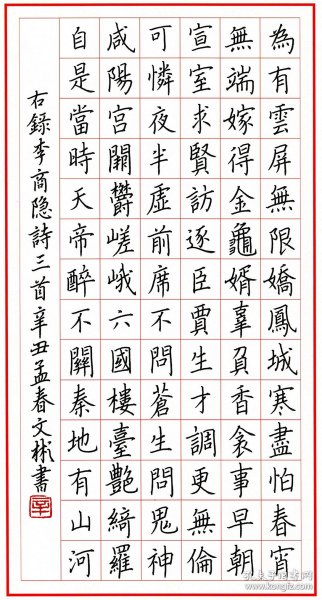 為有雲屏無限嬌鳳城寒盡怕春宵
無端嫁得金龜婿辜負香衾事早朝
宣室求賢訪逐臣賈生才調更無倫
可憐夜半虛前席不問蒼生問鬼神
咸陽宮闕鬱嵯峨六國樓臺艷綺羅
自是當時天帝醉不關秦地有山河
右錄李商隐詩三首辛丑孟春文彬書